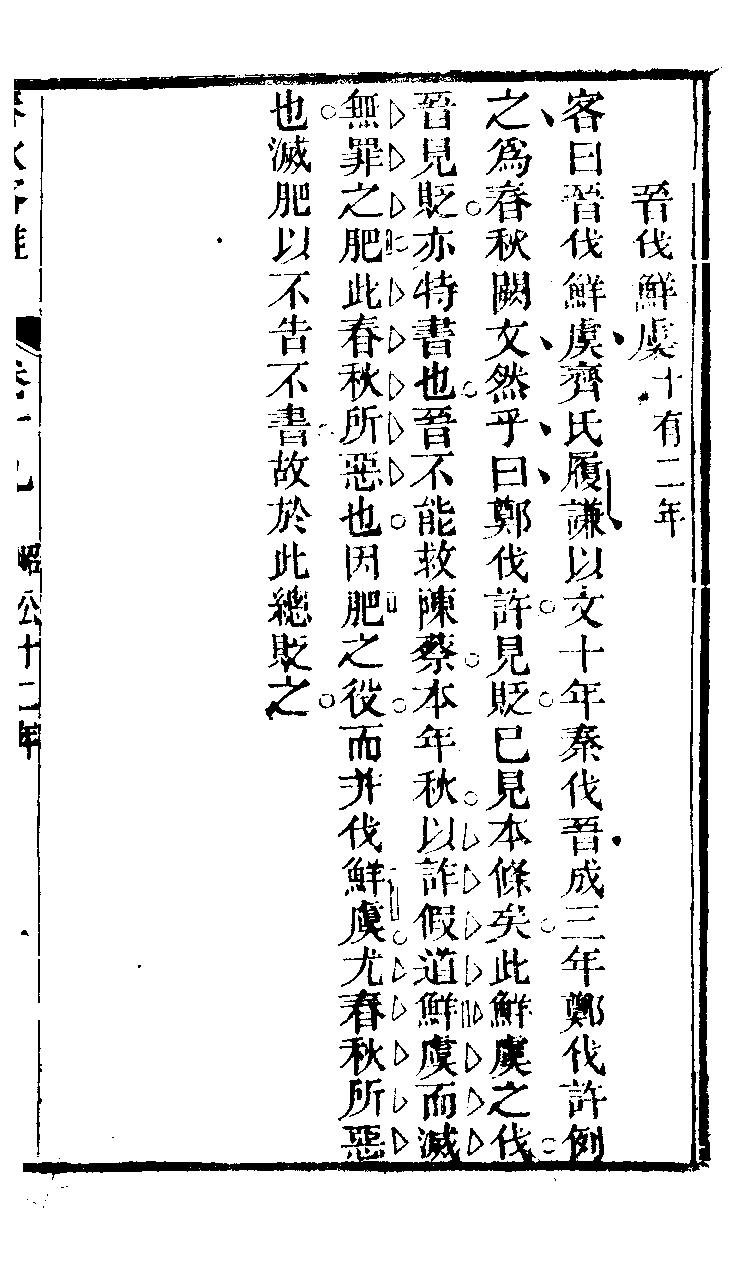 晉伐鮮虞十有二年
客曰晉伐鮮虞齊氏履謙以文十年秦伐晉成三年鄭伐許例
之爲春秋闕文然乎曰鄭伐許見貶已見本條矣此鮮虞之伐
晉見貶亦特書也吾不能救陳蔡本年秋以詐假道鮮虞而滅
無罪之肥此春秋所惡也因肥之役而并伐鮮虞尤春秋所惡
也滅肥以不告不書故於此總貶之
卷十九 昭公十二年